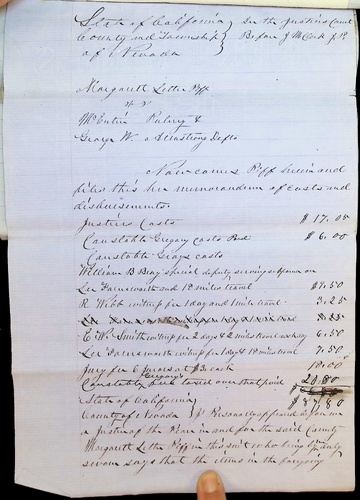 State of California } In the Justices Court
County and Township } Before J McCook J P.
of Nevada }
Margarett Letter Plff
vs
McEntire &
George W Armstrong Defts
Now comes Plff herein and
files this her memorandum of costs and
disbursements
Justices Costs $17.05
Constable Gregory Costs Paid $6.00
Constable Grays costs
William B Bray special deputy serving subpoena on
Lee Farnsworth and 18 miles travel $7.50
R Webb witness for 1 day and 1 mile travel 3.25
E W Smith witness for 2 days & 2 miles travel each way 6.50
Lee Farnsworth witness for 1 day & 18 miles travel 7.50
Jury for 6 jurors at $3 each 18.00
Constable Gregory's taxed over that paid
State of California
County of Nevada } Personally appeared before me
a Justice of the Peace in and for the said County
Margarett Letter Plff in this suit who being by me duly
sworn says that the items in the foregoing